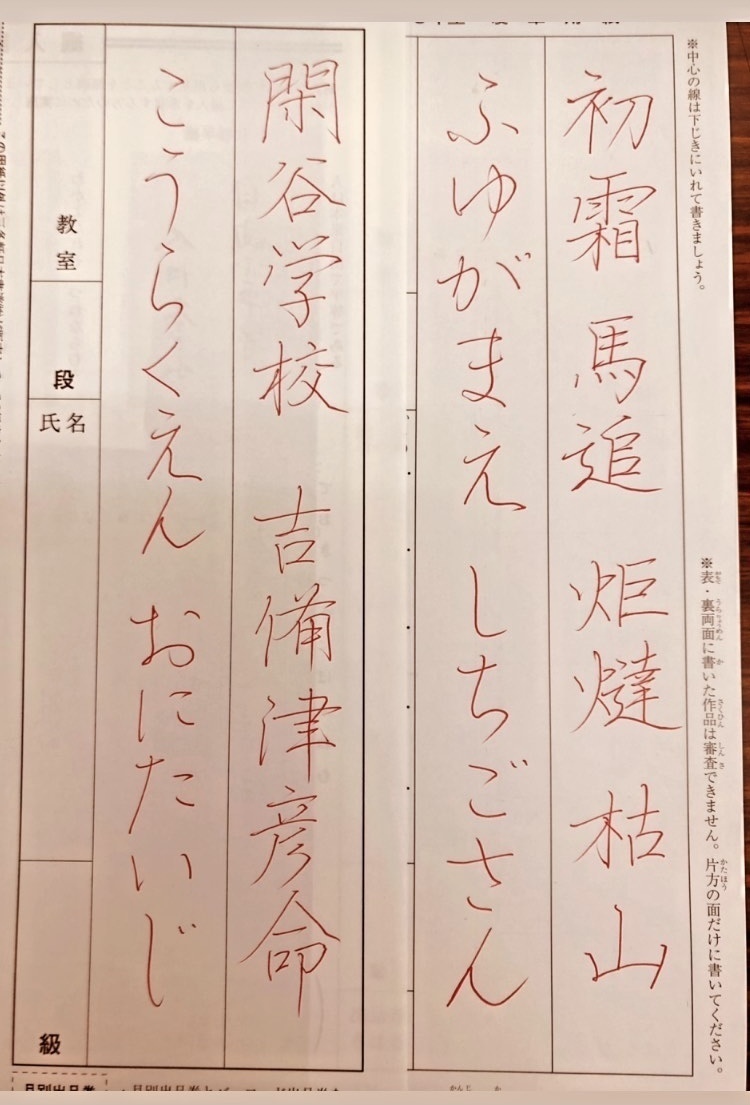 ※中心の線は下じきにいれて書きましょう。
※表・裏両面に書いた作品は審査できません。片方の面だけに書いてください。
初霜 馬追 炬燵 枯山
ふゆがまえ しちごさん
閑谷学校 吉備津彦命
こうらくえん おにたいじ
教室
段
氏名
級